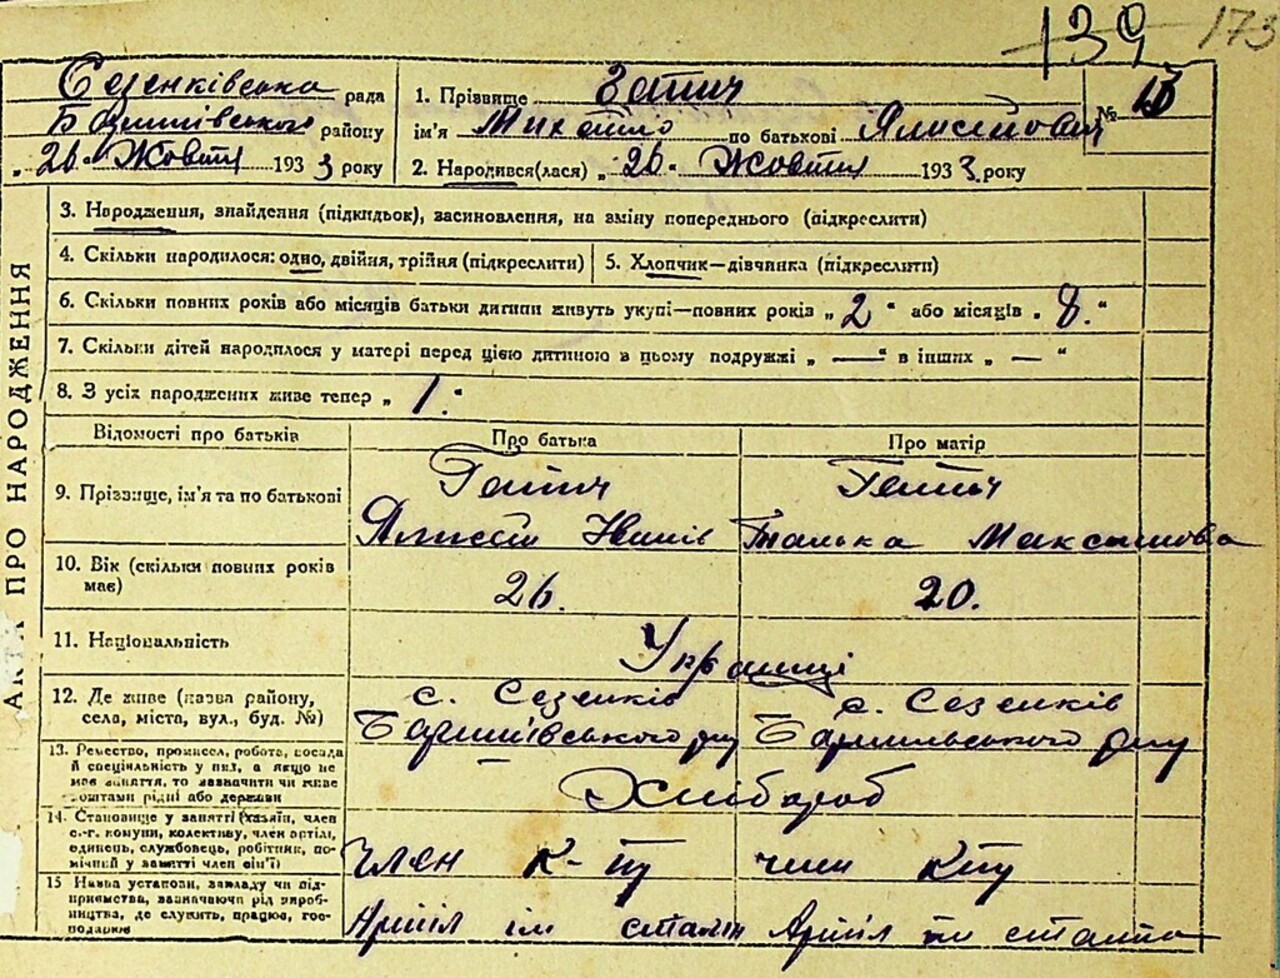 139 173
Сезенківська рада
Баришівського району
„ 26 " Жовтня 1933 року
1. Прізвище Гатич
ім'я Михайло по батькові
2. Народився(лася) „ 26 " Жовтня 1933 року
№ 15
АКТА ПРО НАРОДЖЕННЯ
3. Народження, знайдення (підкидьок), засиновлення, на зміну попереднього (підкреслити)
4. Скільки народилося: одно, двійня, трійня (підкреслити)
5. Хлопчик—дівчинка (підкреслити)
6. Скільки повних років або місяців батьки дитини живуть укупі—повних років „ 2 " або місяців „ 8. "
7. Скільки дітей народилося у матері перед цією дитиною в цьому подружжі „ — " в інших „ — "
8. З усіх народжених живе тепер „ 1. "
Відомості про батьків Про батька Про матір
9. Прізвище, ім'я та по батькові
Гатич Гатич
Іванів Максимова
10. Вік (скільки повних років має) 26. 20.
11. Національність Українці
12. Де живе (назва району, села, міста, вул., буд. №)
с. Сезенків с. Сезенків
Баришівського р-ну Баришівського р-ну
13. Ремество, промисел, робота, посада й спеціяльність у них, а якщо не має заняття, то зазначити чи живе коштами рідні або держави
Хлібороб
14. Становище у занятті (хазяїн, член с.-г. комуни, колективу, член артілі, одинець, службовець, робітник, помічний у занятті член сім'ї)
член к-пу член кпу
15 Назва установи, закладу чи підприємства, зазначаючи рід виробництва, де служить, працює, господарює
Артіл ім сталін Артіл ім сталіна